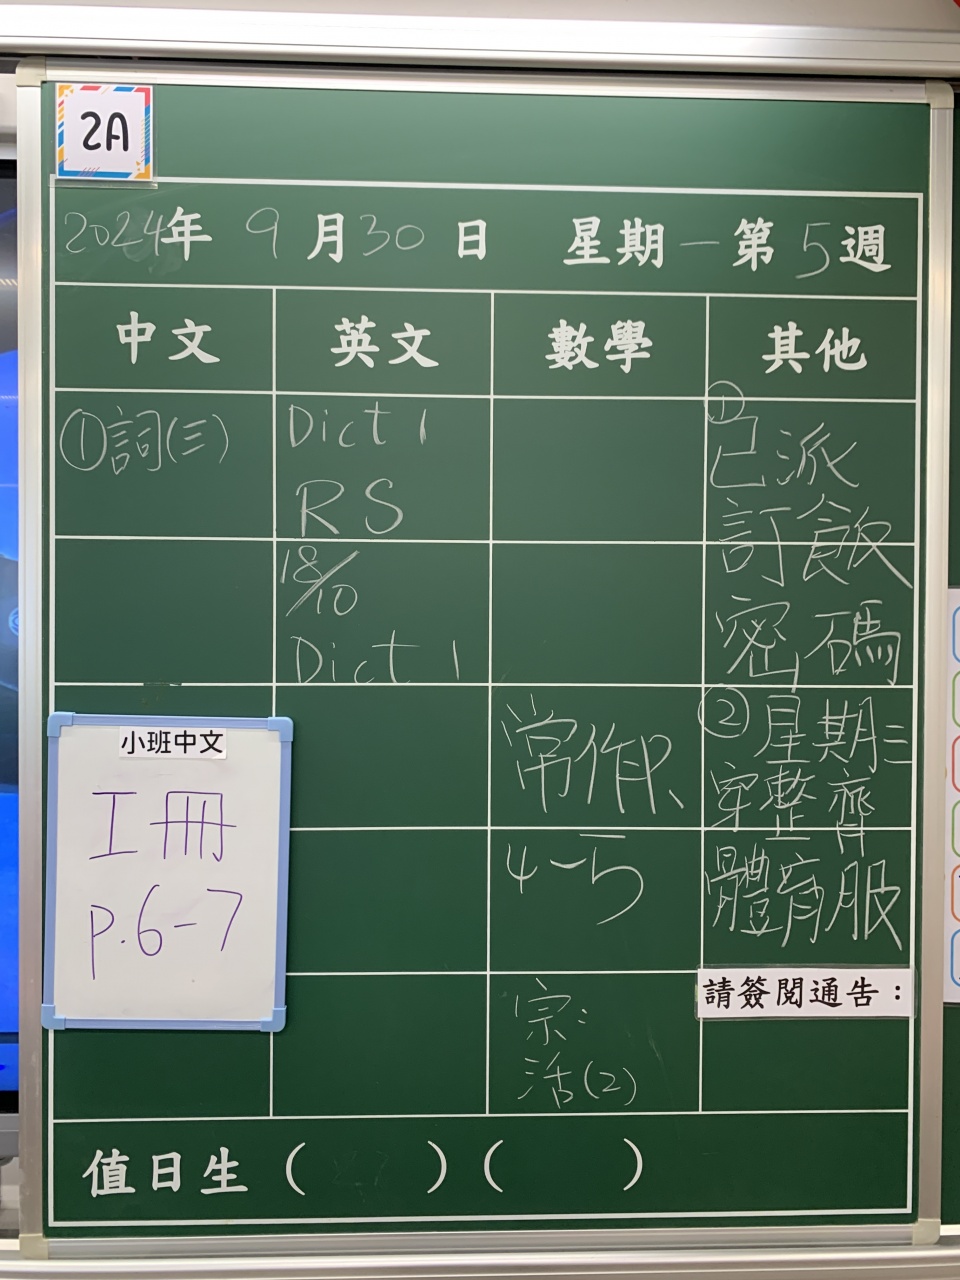 2A
2024年 9月30日 星期一 第5週
中文 英文 數學 其他
①詞(三)
小班中文
工冊
p.6-7
Dict 1
RS
18/10
Dict 1
常作
4-5
宗:
活(2)
①
已派
訂飯
密碼
②星期三
穿整齊
體育服
請簽閱通告：
值日生（ ）（ ）